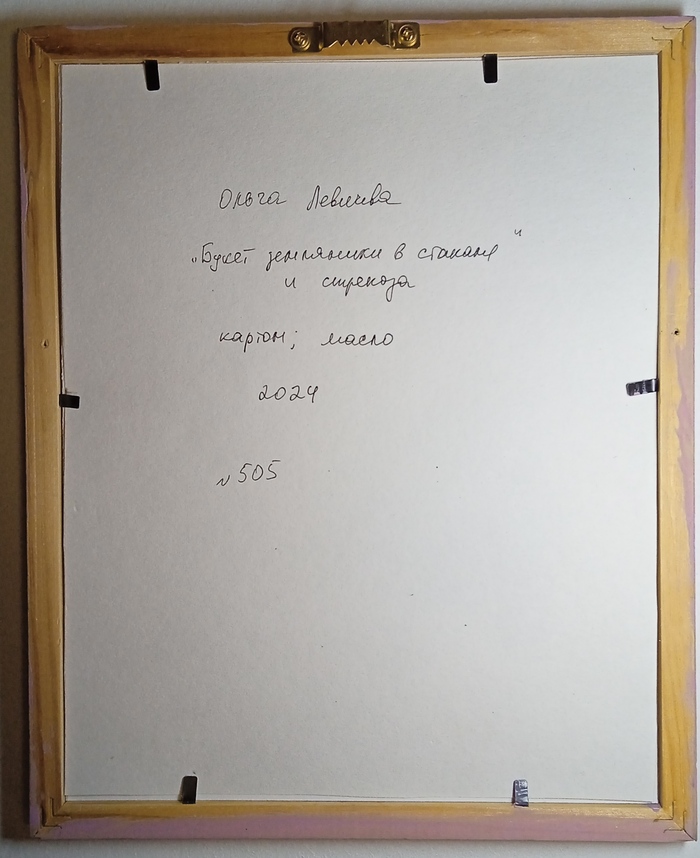 Ольга Левиева
„Букет земляники в стакане"
и стрекоза
картон; масло
2024
N 505